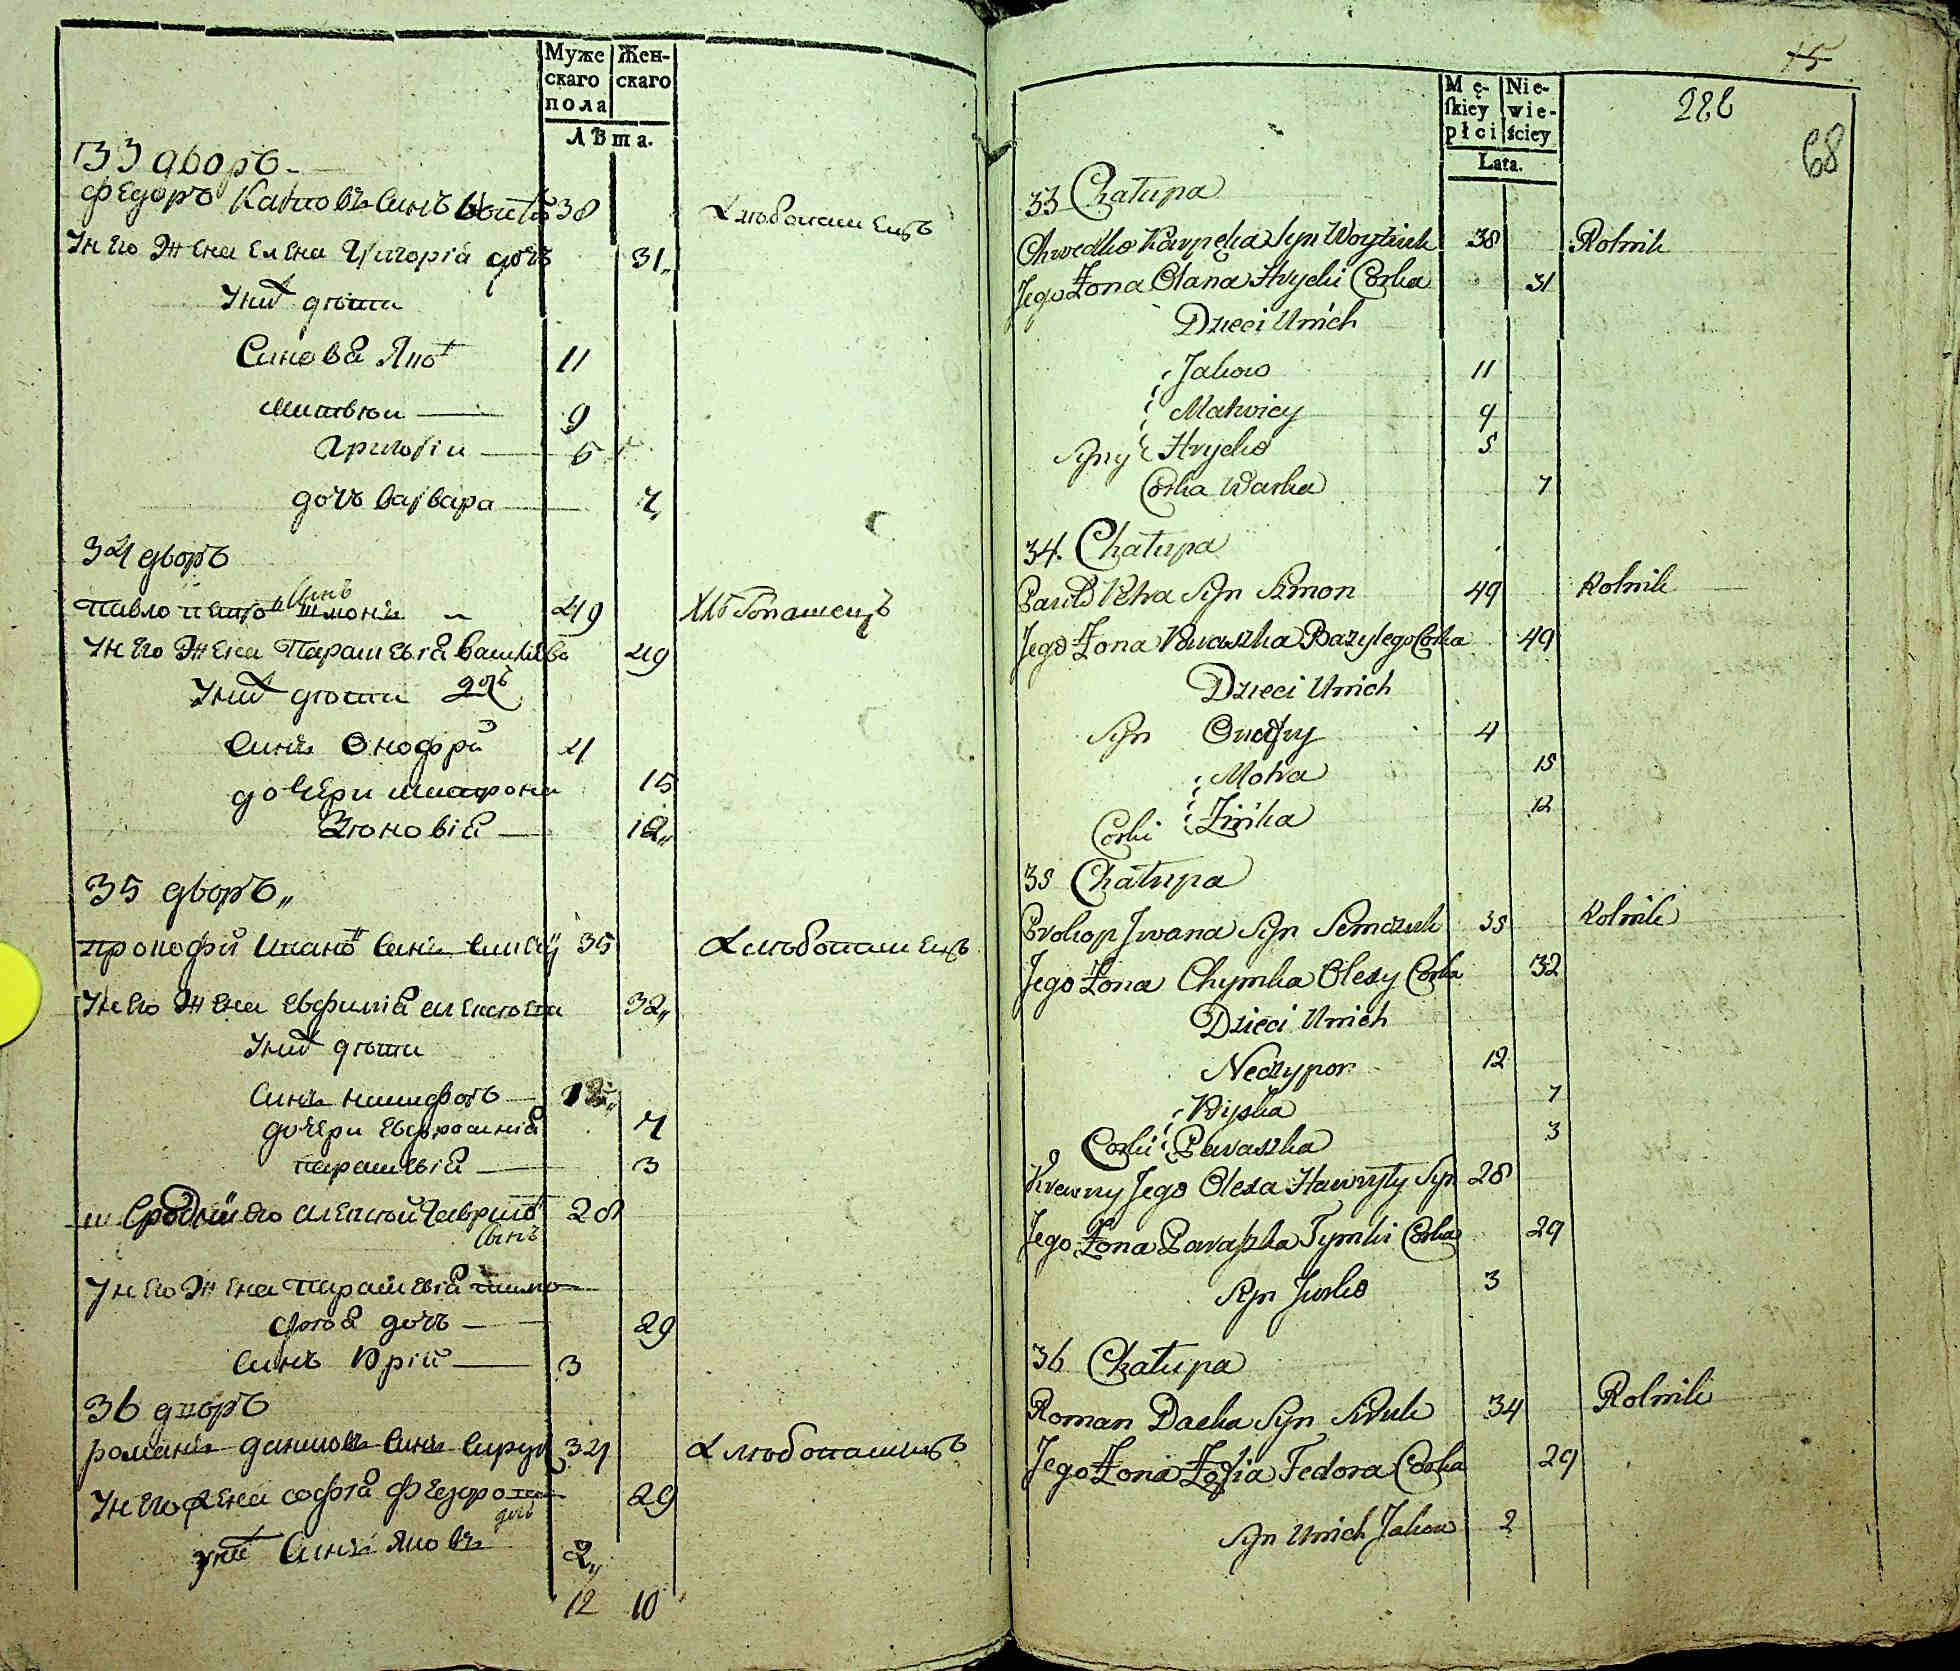 Муже
скаго
пола
Жен-
скаго
Лѣта.
33 дворъ
Федоръ Карповъ синъ Воитю 38
У него жена Елена Григорія дочъ 31
У нихъ дѣти
Синова Яковъ 11
Матвѣй 9
Григорій 5
дочъ Варвара 7
34 дворъ
Павло Петровъ синъ Шмонъ 49
Хлѣбопашецъ
У него жена Параскевія Васильева 49
У нихъ дѣти дочъ
Синъ Онофрій 4
дочери Матрона 15
Зѣновія 12
35 дворъ
Прокофій Ивановъ синъ 35
Хлѣбопашецъ
У него жена Евфимія Алексѣева 32
У нихъ дѣти
Синъ Никифоръ 12
дочери Евфросинія 7
Параскевія 3
Сродній его Алексѣй Гаврилъ 28
синъ
У него жена Параскевія Тимо
дочъ 29
Синъ Юрій 3
36 дворъ
Романъ Даниловъ синъ 34
Хлѣбопашецъ
У него жена Софія Федорова 29
дочъ
у нихъ Синъ Яковъ 2
12 10
15
Mę-
skiey
płci
Nie-
wie-
ściey
Lata.
282
68
33 Chałupa
Chwedko Karpeka Syn Woytiuk 38 Rolnik
Jego Żona Olana Hrycki Corka 31
Dzieci Unich
Jakow 11
Matwiey 9
Syny Hrycko 5
Corka Warka 7
34. Chałupa
Pawło Petra Syn Szmon 49 Rolnik
Jego Żona Paraszka Bazylego Corka 49
Dzieci Unich
Syn Onofry 4
Motra 15
Corki Zinka 12
35 Chałupa
Prokop Jwana Syn Semczuk 35 Rolnik
Jego Żona Chymka Olexy Corka 32
Dzieci Unich
Neczypor 12
Pryska 7
Corki Paraszka 3
Krewny Jego Olexa Hawryły Syn 28
Jego Żona Paraszka Tymki Corka 29
Syn Jurko 3
36 Chałupa
Roman Dacka Syn Kruk 34 Rolnik
Jego Żona Zofia Fedora Corka 29
Syn Unich Jakow 2